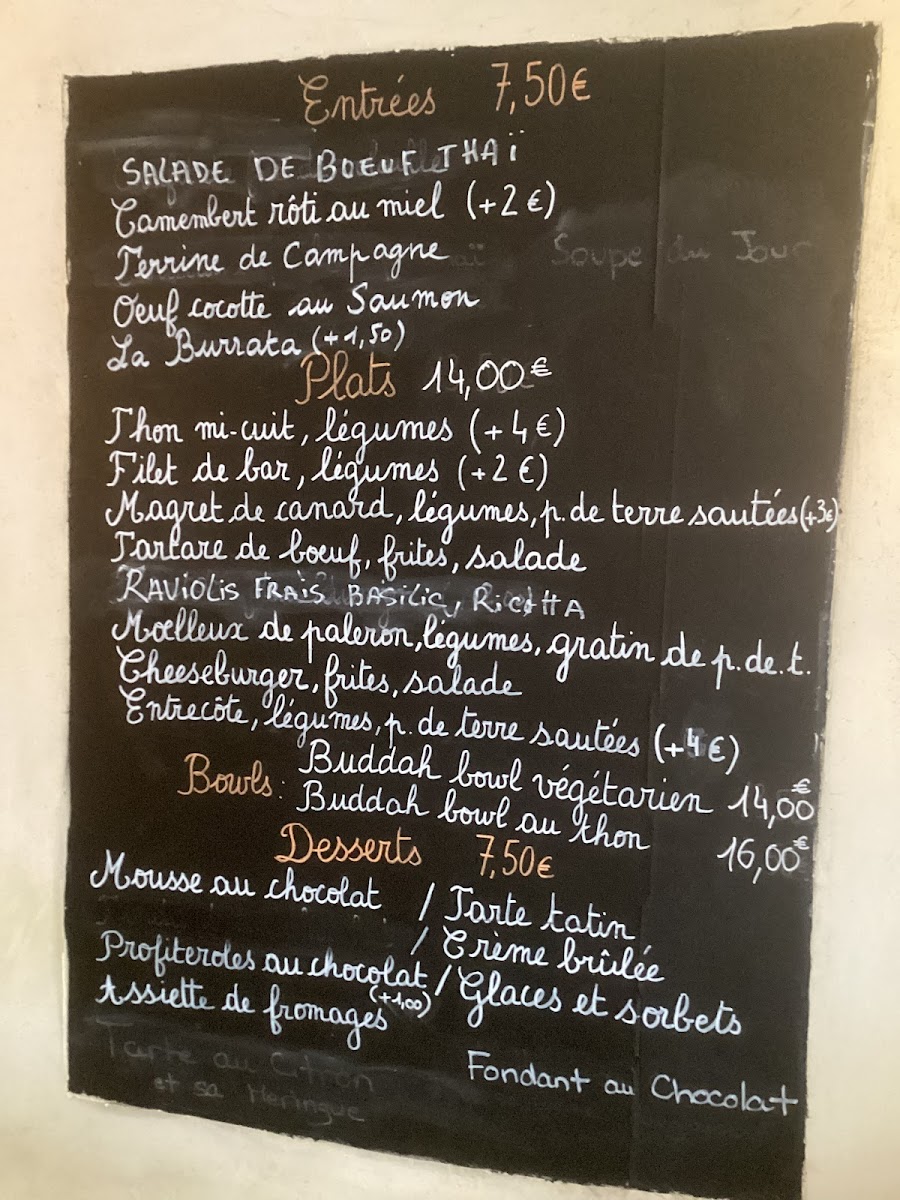 Entrées 7,50€
SALADE DE BOEUF THAÏ
Camembert rôti au miel (+2€)
Terrine de Campagne
Soupe du Jour
Oeuf cocotte au Saumon
La Burrata (+1,50)
Plats 14,00€
Thon mi-cuit, légumes (+4€)
Filet de bar, légumes (+2€)
Magret de canard, légumes, p. de terre sautées (+3€)
Tartare de boeuf, frites, salade
RAVIOLIS FRAIS BASILIC, RICOTTA
Moelleux de paleron, légumes, gratin de p. de. t.
Cheeseburger, frites, salade
Entrecôte, légumes, p. de terre sautées (+4€)
Bowls: Buddah bowl végétarien 14,00€
Buddah bowl au thon 16,00€
Desserts 7,50€
Mousse au chocolat / Tarte tatin
/ Crème brûlée
Profiteroles au chocolat / Glaces et sorbets
Assiette de fromages (+1,00)
Tarte au Citron
et sa Meringue
Fondant au Chocolat